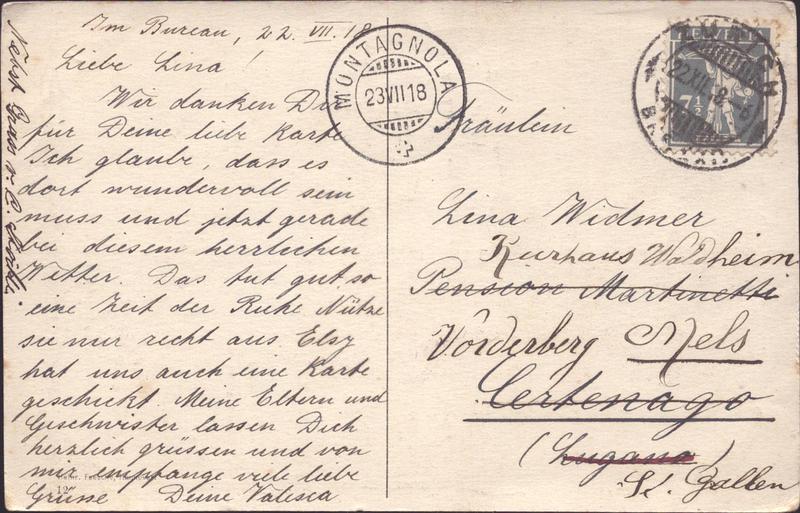 Im Bureau, 22. VII. 18
Liebe Lina!
Wir danken Dir
für Deine liebe Karte
Ich glaube, dass es
dort wundervoll sein
muss und jetzt gerade
bei diesem herrlichen
Wetter. Das tut gut, so
eine Zeit der Ruhe Nütze
sie nur recht aus. Elsy
hat uns auch eine Karte
geschickt. Meine Eltern und
Geschwister lassen Dich
herzlich grüssen und von
mir empfange viele liebe
Grüsse Deine Valesca
MONTAGNOLA
23 VII 18
HELVETIA
7½
22 VII 18
Fräulein
Lina Widmer
Kurhaus Waldheim
Pension Martinetti
Vorderberg Mels
Certenago
(Lugano)
St. Gallen